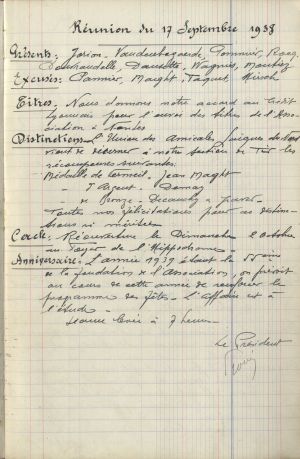 Réunion du 17 Septembre 1938
Présents: Jorion, Vandenbogaerde, Pommier, Racq,
Wagnies,
Excusés: Pannier, Maght, Taquet, Hirsch
Titres. Nous donnons notre accord au Crédit
Lyonnais pour l'envoi des titres de l'Asso-
ciation à
Distinctions. L'Union des Amicales Laïques de
vient de décerner à notre section de Tir les
récompenses suivantes:
Médaille de Vermeil. Jean Maght
" d'Argent. Domay
" de Bronze.
Toutes nos félicitations pour ces distinc-
tions si méritées
Cercle. Réouverture le Dimanche 2 Octobre
au Foyer de l'Hippodrome.
Anniversaire. L'année 1939 étant le
de la fondation de l'Association, on prévoit
au cours de cette année de renforcer le
programme des fêtes. L'affaire est à
l'étude.
Séance levée à 7 heures
Le Président